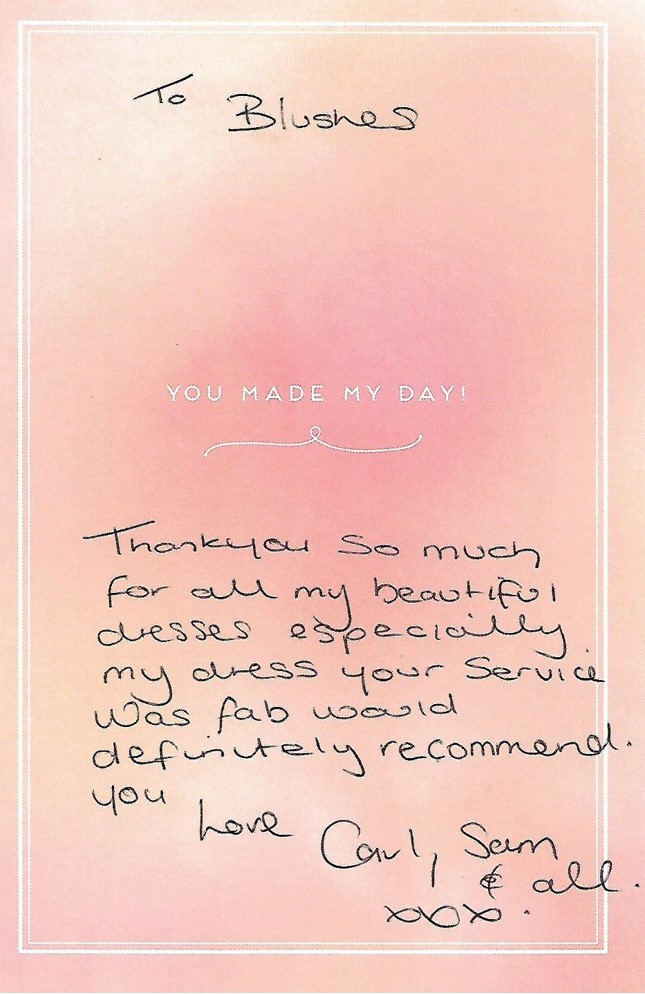 To Blushes
YOU MADE MY DAY!
Thankyou so much
for all my beautiful
dresses especially
my dress your Service
Was fab would
definitely recommend.
you
Love Carl, Sam
& all.
xxx.